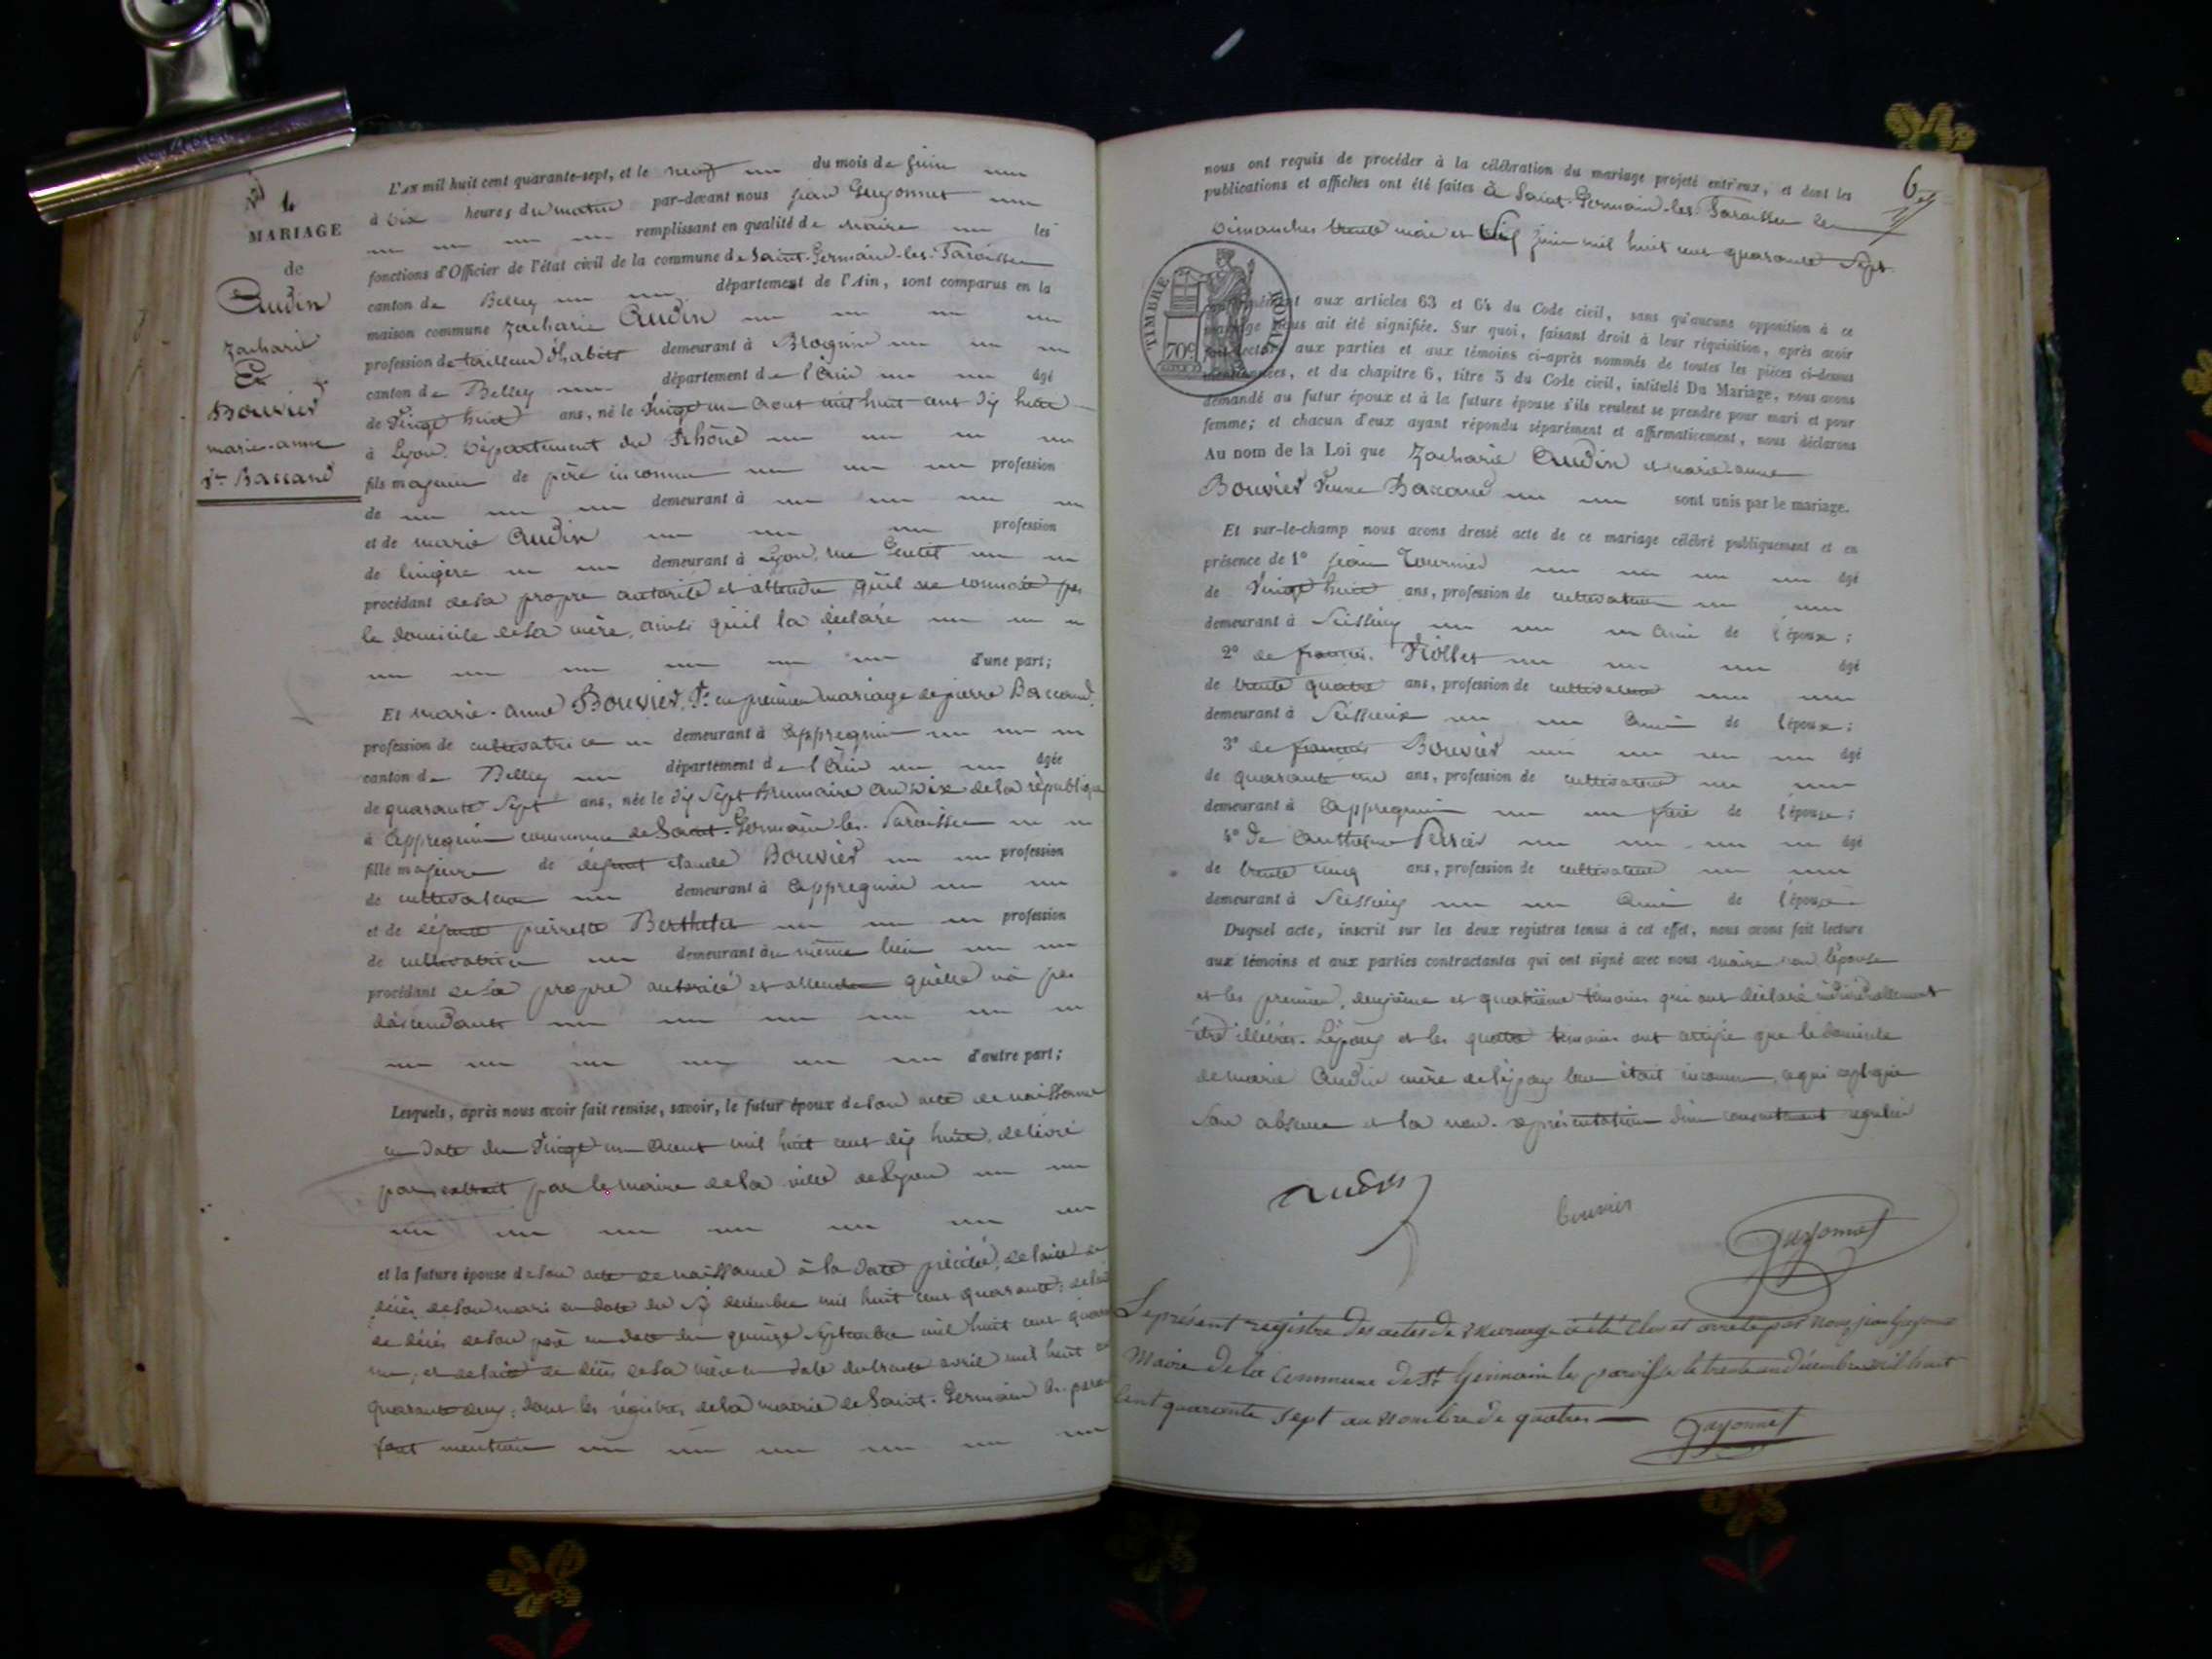 4
MARIAGE
de
Audin
Zacharie
Et
Bouvier
marie-anne
Vve Baccard
L'An mil huit cent quarante-sept, et le neuf du mois de juin
à dix heures du matin par-devant nous jean Guyonnet
remplissant en qualité de maire les
fonctions d'Officier de l'état civil de la commune de Saint-Germain-les-Paroisses
canton de Belley département de l'Ain, sont comparus en la
maison commune Zacharie Audin
profession de tailleur d'habits demeurant à
canton de Belley département de l'Ain âgé
de vingt huit ans, né le vingt un aout mil huit cent dix huit
à Lyon. Département du Rhône
fils majeur de père inconnu profession
de demeurant à
et de marie Audin profession
de lingère demeurant à Lyon, rue
procédant de sa propre autorité et attendu qu'il ne connait pas
le domicile de sa mère, ainsi qu'il la déclaré
d'une part;
Et marie-anne Bouvier, Vve en premier mariage de pierre Baccard
profession de cultivatrice demeurant à Appregnin
canton de Belley département de l'Ain âgée
de quarante sept ans, née le dix sept brumaire an dix de la république
à Appregnin commune de Saint-Germain-les-Paroisses
fille majeure de défunt claude Bouvier profession
de cultivateur demeurant à Appregnin
et de défunte pierrette Berthelet profession
de cultivatrice demeurant au même lieu
procédant de sa propre autorité et attendu qu'elle n'a pas
d'ascendants
d'autre part;
Lesquels, après nous avoir fait remise, savoir, le futur époux de son acte de naissance
en date du vingt un aout mil huit cent dix huit, délivré
par extrait par le maire de la ville de Lyon
et la future épouse de son acte de naissance à la date précitée, de l'acte de
décès de son mari en date du décembre mil huit cent quarante; de l'acte
de décès de son père en date du quinze septembre mil huit cent quarante
un; et de l'acte de décès de sa mère en date du trente avril mil huit cent
quarante deux; dont les régistres de la mairie de Saint-Germain les paroisses
font mention
6
nous ont requis de procéder à la célébration du mariage projeté entr'eux, et dont les
publications et affiches ont été faites à Saint-Germain-les-Paroisses les
Dimanches trente mai et six juin mil huit cent quarante sept
conformément aux articles 63 et 64 du Code civil, sans qu'aucune opposition à ce
mariage nous ait été signifiée. Sur quoi, faisant droit à leur réquisition, après avoir
fait lecture aux parties et aux témoins ci-après nommés de toutes les pièces ci-dessus
mentionnées, et du chapitre 6, titre 5 du Code civil, intitulé Du Mariage, nous avons
demandé au futur époux et à la future épouse s'ils veulent se prendre pour mari et pour
femme; et chacun d'eux ayant répondu séparément et affirmativement, nous déclarons
TIMBRE ROYAL
70c
Au nom de la Loi que Zacharie Audin et marie-anne
Bouvier veuve Baccard sont unis par le mariage.
Et sur-le-champ nous avons dressé acte de ce mariage célébré publiquement et en
présence de 1° jean Tournier âgé
de vingt huit ans, profession de cultivateur
demeurant à ami de l'époux;
2° de françois âgé
de trente quatre ans, profession de cultivateur
demeurant à ami de l'époux;
3° de françois Bouvier âgé
de quarante un ans, profession de cultivateur
demeurant à Appregnin frère de l'épouse;
4° de Anthelme âgé
de trente cinq ans, profession de cultivateur
demeurant à ami de l'épouse
Duquel acte, inscrit sur les deux registres tenus à cet effet, nous avons fait lecture
aux témoins et aux parties contractantes qui ont signé avec nous maire non l'épouse
et les premier, deuxième et quatrième témoins qui ont déclaré individuellement
être illétrés. L'époux et les quatre témoins ont certifié que le domicile
de marie Audin mère de l'époux leur était inconnu, ce qui explique
son absence et la non-représentation d'un consentement régulier
Audin
bouvier
Guyonnet
Le présent registre des actes de Mariage a été clos et arrêté par nous jean Guyonnet
Maire de la Commune de St Germain les paroisses le trente un décembre mil huit
Cent quarante sept au nombre de quatres
Guyonnet